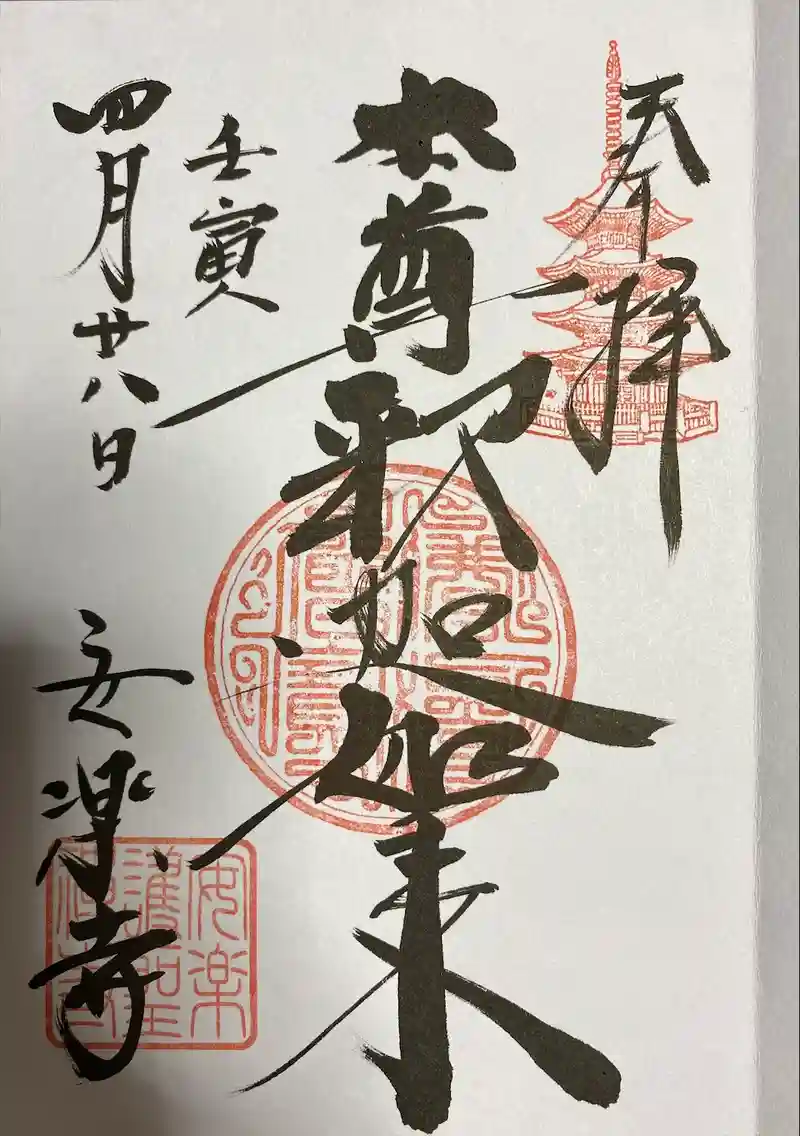 奉拝
本尊釈迦如来
壬寅
四月廿八日
安楽寺
安楽
護聖